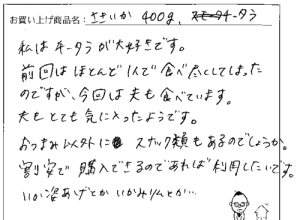 お買い上げ商品名：さきいか 400g、チータラ
私はチータラが大好きです。
前回はほとんど1人で食べ尽くしてしまった
のですが、今回は夫も食べています。
夫もとても気に入ったようです。
おつまみ以外にスナック類もあるのでしょうか。
割安で購入できるのであれば利用したいです。
いか姿あげとかいかみりんとか…